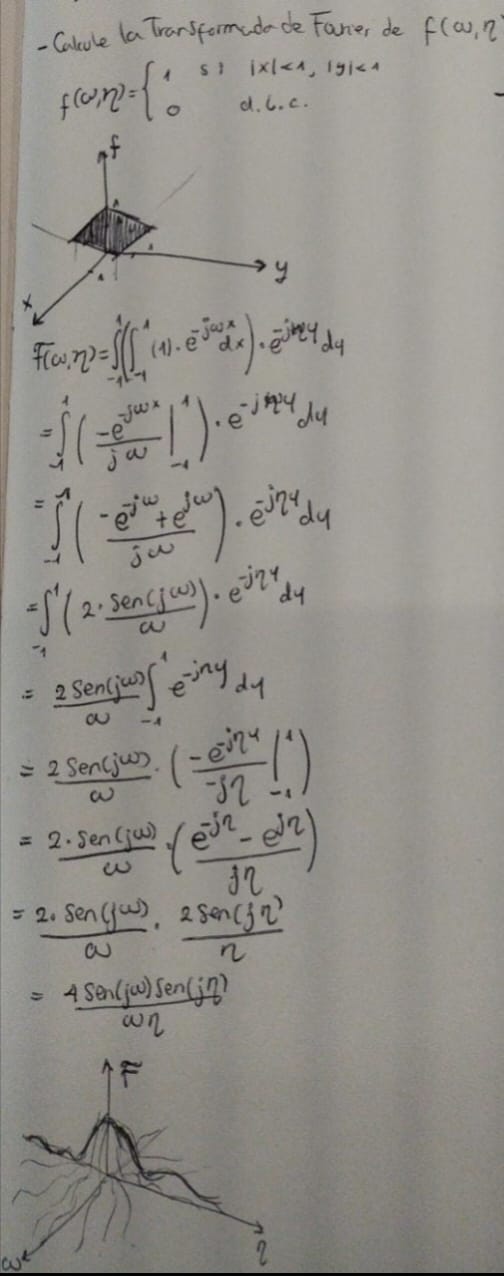 - Calcule la Transformada de Fourier de f(ω,η)
f(ω,η)= { 1 si |x|<1, |y|<1
0 d.l.c.
f
1
1
1
y
x
F(ω,η)=∫_{-1}^{1}(∫_{-1}^{1} (1)·e^{-jωx} dx)·e^{-jηy} dy
=∫_{-1}^{1} ( -e^{-jωx} / jω |_{-1}^{1} )·e^{-jηy} dy
=∫_{-1}^{1} ( -e^{-jω}+e^{jω} / jω )·e^{-jηy} dy
=∫_{-1}^{1} ( 2· Sen(jω) / ω )·e^{-jηy} dy
= 2Sen(jω) / ω ∫_{-1}^{1} e^{-jηy} dy
= 2Sen(jω) / ω · ( -e^{-jηy} / -jη |_{-1}^{1} )
= 2·Sen(jω) / ω · ( e^{-jη} - e^{jη} / jη )
= 2·Sen(jω) / ω · 2Sen(jη) / η
= 4Sen(jω)Sen(jη) / ωη
F
ω
η